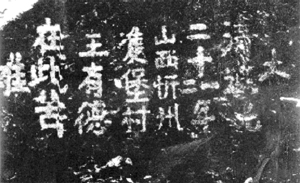 大
清
二十二年
山西忻州
堡村
王有德
在此苦